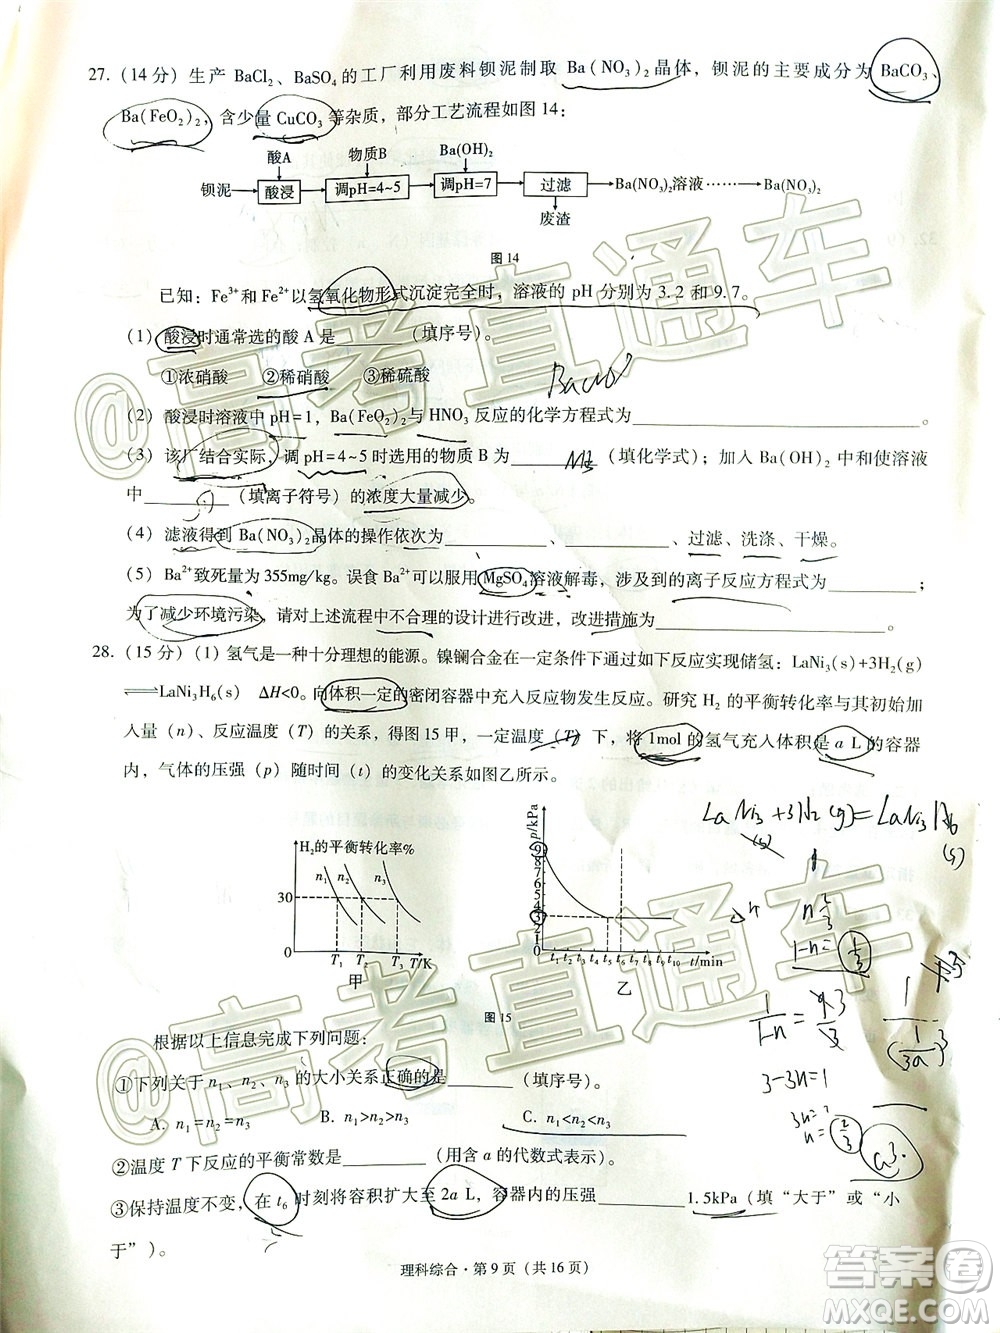 27.（14分）生产 BaCl₂、BaSO₄的工厂利用废料钡泥制取 Ba(NO₃)₂晶体，钡泥的主要成分为 BaCO₃、
Ba(FeO₂)₂，含少量 CuCO₃等杂质，部分工艺流程如图14：
酸A 物质B Ba(OH)₂
钡泥 酸浸 调pH=4~5 调pH=7 过滤 Ba(NO₃)₂溶液 …… Ba(NO₃)₂
废渣
图14
已知：Fe³⁺和Fe²⁺以氢氧化物形式沉淀完全时，溶液的pH分别为3.2和9.7。
（1）酸浸时通常选的酸A是______（填序号）。
①浓硝酸 ②稀硝酸 ③稀硫酸
（2）酸浸时溶液中pH=1，Ba(FeO₂)₂与HNO₃反应的化学方程式为______。
（3）该厂结合实际，调pH=4~5时选用的物质B为______（填化学式）；加入Ba(OH)₂中和使溶液
中______（填离子符号）的浓度大量减少。
（4）滤液得到Ba(NO₃)₂晶体的操作依次为______、______、过滤、洗涤、干燥。
（5）Ba²⁺致死量为355mg/kg。误食Ba²⁺可以服用MgSO₄溶液解毒，涉及到的离子反应方程式为______；
为了减少环境污染，请对上述流程中不合理的设计进行改进，改进措施为______。
28.（15分）（1）氢气是一种十分理想的能源。镍镧合金在一定条件下通过如下反应实现储氢：LaNi₃(s)+3H₂(g)
⇌LaNi₃H₆(s) ΔH<0。向体积一定的密闭容器中充入反应物发生反应。研究H₂的平衡转化率与其初始加
入量（n）、反应温度（T）的关系，得图15甲，一定温度（T）下，将1mol的氢气充入体积是a L的容器
内，气体的压强（p）随时间（t）的变化关系如图乙所示。
H₂的平衡转化率%
n₁ n₂ n₃
30
10
0
T₁ T₂ T₃ T/K
甲
p/kPa
9
8
6
5
4
3
2
1
0
t₁ t₂ t₃ t₄ t₅ t₆ t₇ t₈ t₉ t₁₀ t/min
乙
图15
LaNi₃ + 3H₂(g) = LaNi₃H₆
(s) (s)
根据以上信息完成下列问题：
3-3n=1
①下列关于n₁、n₂、n₃的大小关系正确的是______（填序号）。
A. n₁=n₂=n₃ B. n₁>n₂>n₃ C. n₁<n₂<n₃
②温度T下反应的平衡常数是______（用含a的代数式表示）。
③保持温度不变，在t₆时刻将容积扩大至2a L，容器内的压强______1.5kPa（填“大于”或“小
于”）。
理科综合·第9页（共16页）
@高考直通车
@高考直通车
答案圈
MXQE.COM